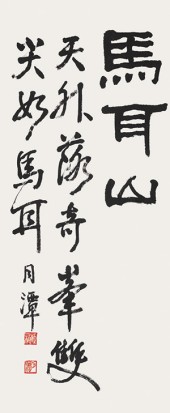 馬耳山
天外落奇峯雙
尖如馬耳
月潭